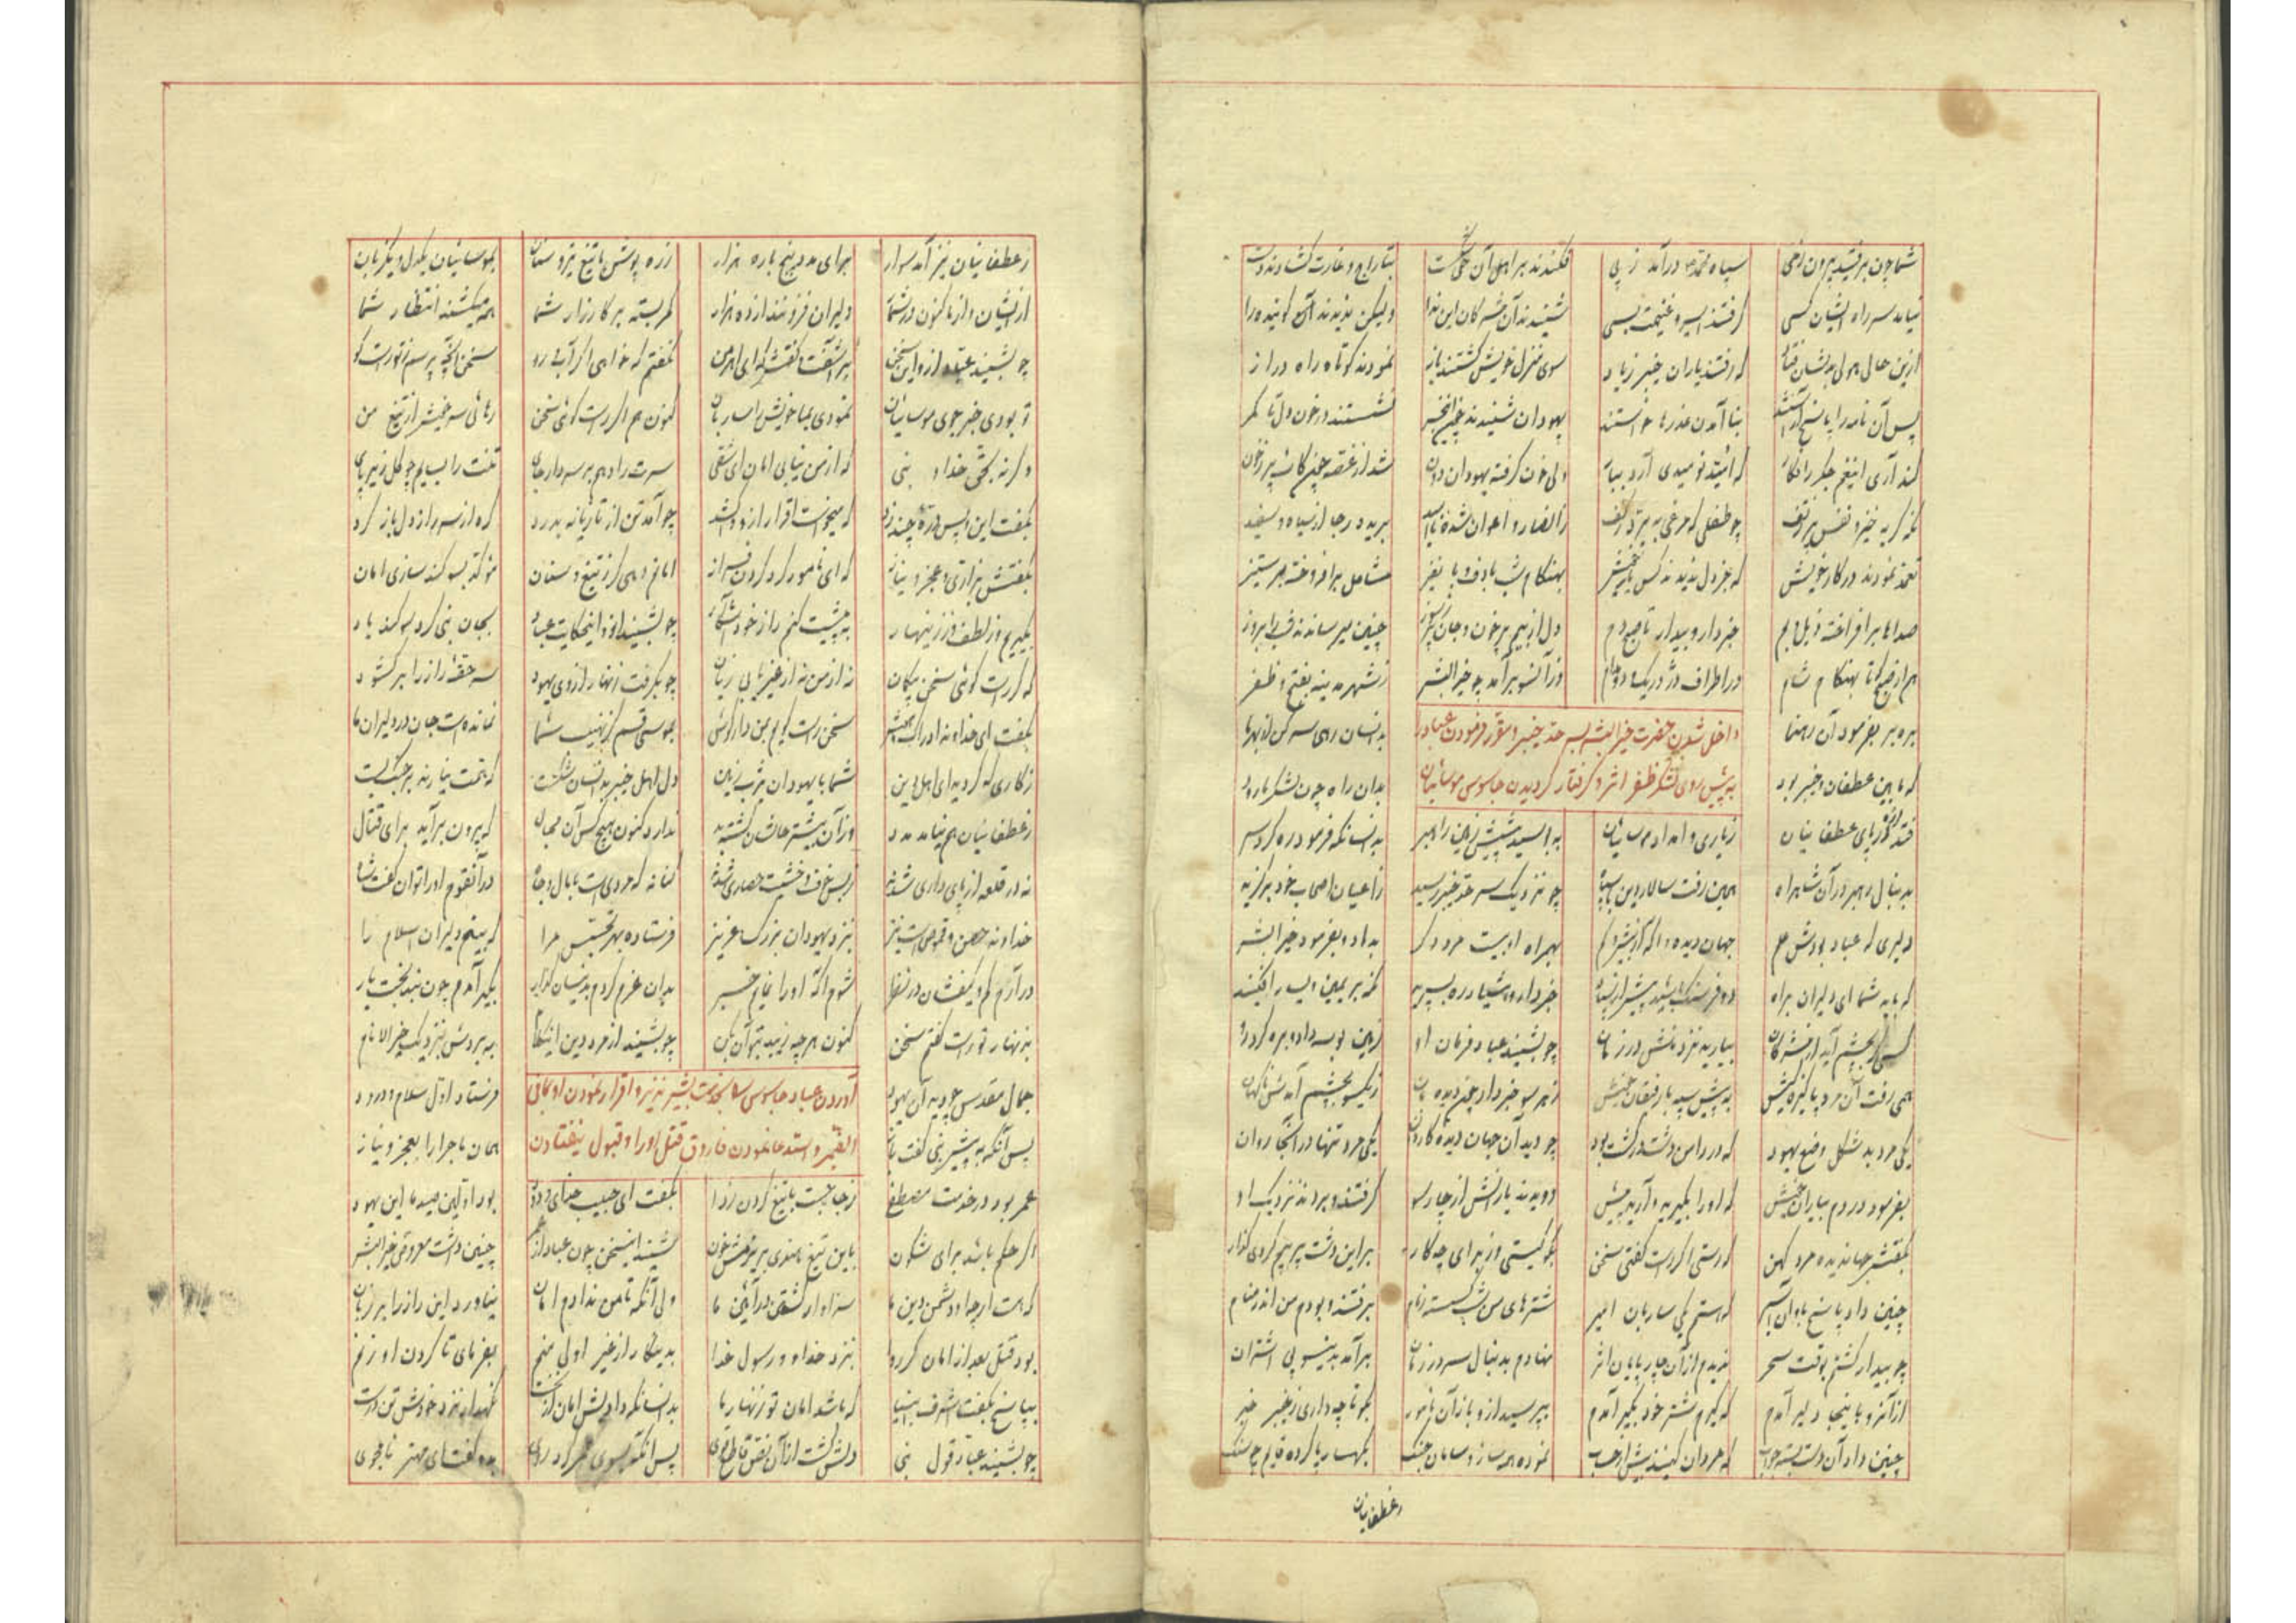 شما چون برفتید بیرون ز پی سپاه محمد درآمد ز پی فکندند بر اهل آن حی شکست بتاراج و غارت گشادند دست
نیامد سر راه ایشان کسی گرفتند اسیر و غنیمت بسی شنیدند آن مشرکان این ندا ولیکن ندیدند گوینده را
ازین حال هولی بدیشان فتاد که رفتند یاران خیبر ز یاد سوی منزل خویش گشتند باز نمودند کوتاه راه دراز
پس آن نامه را پاسخ آراستند بنا آمدن عذرها خواستند یهودان شنیدند چون این خبر نشستند در خون دل تا کمر
کند آری این غم جگر را فگار که امید نومیدی آرد ببار ولی خون گرفته یهودان دون شد از غصه چون کاسه پر ز خون
که گریه خیز و نفس پر ز تف چو طفلی که مرغی بپرد ز کف ز انصار و اعوان شده ناامید بریده رجا از سیاه و سفید
تعمد نمودند در کار خویش که جز دل ندیدند کس یار خویش بهنگام شب با دف و با نفیر مشاعل برافروخته بر ستیز
صداها برافراخته زیر و بم خبردار و بیدار تا صبحدم دل از بیم پر خون و جان پر ز سوز چنین میرساندند شب را بروز
هم از صبح تا بهنگام شام در اطراف دژ در تک و دو مدام وزآنسو برآمد چو خیر البشر ز شهر مدینه بفتح و ظفر
داخل شدن حضرت خیر البشر بسرحد خیبر و مقرر فرمودن عباد را
به پیش روی لشکر ظفر اثر و گرفتار گردیدن جاسوس موسائیان
بره بر بفرمود آن رهنما بدانسان رهی سر کن از بهر ما
که مابین غطفان و خیبر بود بدان راه چون لشکر ما رود
فتد لرزه بر پای غطفانیان ز یاری و امداد موسائیان به امید پیشش زمین راهبر بدانسانکه فرمود ره کرد سر
بدنبال رهبر در آن شاهراه همی رفت سالار دین با سپاه چو نزدیک سرحد خیبر رسید ز اعیان اصحاب خود برگزید
دلیری که عباد بودش علم بهمراه او بیست مرد دگر بداد و بفرمود خیر البشر
که باید شما ای دلیران براه دو فرسنگ باشید پیش از سپاه خبردار و هشیار ره بسپرید نظر بر یمین و یسار افکنید
کسی گر بچشم آید از مشرکان بیارید نزد منش در زمان چو بشنید عباد فرمان او زمین بوسه داد و بره کرد رو
همی رفت آن مرد پاکیزه کیش به پیش سپه با رفیقان خویش ز یکسو بچشم آمدش ناگهان
یکی مرد بد شکل وضع یهود که در دامن دشت در گشت بود چو دید آن جهان دیده کاردان یکی مرد تنها در آنجا روان
بفرمود در دم بیاران خویش که او را بگیرید و آرید پیش دویدند یارانش از چارسو گرفتند و بردند نزدیک او
بگفتش جهاندیده مرد کهن که رستی اگر راست گفتی سخن بگو کیستی وز برای چه کار بر این دشت پر بیم کردی گذار
چنین داد پاسخ باو آن اسیر که هستم یکی ساربان امیر شترهای من شب گسسته زمام برفتند و بودم من اندر منام
چو بیدار گشتم بوقت سحر ندیدم از آن چارپایان اثر نهادم بدنبال سر در زمان برآمد بدینسو پی اشتران
از آنرو باینجا دلیر آمدم که گیرم شتر خود بگیر آمدم بپرسید ازو باز آن نامور بگو تا چه داری ز خیبر خبر
چنین داد آن دست بسته جواب نموده همه ساز و سامان جنگ
ز غطفانیان
ز غطفانیان نیز آمد سوار برای مدد پنج باره هزار زره پوش با تیغ تیز و سنان بموسائیان یکدل و یکزبان
از ایشان و از ما کنون در شمار دلیران فزونند از ده هزار کمر بسته بر کارزار شما همه میکشند انتظار شما
چو بشنید عباد ازو این سخن برآشفت و گفتش که ای اهرمن نگفتم که خواهی اگر آبرو سخن آنچه پرسم ز تو راست گو
تو بودی خبرجوی موسائیان نمودی بما خویش را ساربان کنون هم اگر راست گوئی سخن رهائی سر خویش از تیغ من
وگرنه بحق خدا و نبی که از من نیابی امان ای شقی سرت را دهم بر سر دار جای تنت را بسایم چو گل زیر پای
بگفت این و پس دره چند زد که میخواست اقرار ازو کشد چو آمد تن از تازیانه بدرد گره از سر راز دل باز کرد
بگفتش بزاری و عجز و نیاز که ای نامور گرد گردن فراز امانم دهی گر ز تیغ و سنان مؤکد بسوگند سازی امان
بگویم وز لطف در زینهار به پیشت کنم راز خود آشکار چو بشنید ازو این حکایت عباد بجان نبی کرد سوگند یاد
که گر راست گوئی سخن بیگمان نه از من نه از غیر یابی زیان چو بگرفت زنهار ازوی یهود سر حقه راز را برگشود
سخن راست گویم بمن دار گوش بموسی قسم کز نهیب شما نمانده است جان در دلیران ما
ز کاری که کردید ای اهل دین شما با یهودان یثرب زمین دل اهل خیبر بدانسان شکست که همت نیارند بر جنگ بست
ز غطفانیان هم نیامد مدد وزآن بیشتر حالشان گشته بد ندارد کنون هیچکس آن مجال که بیرون برآید برای قتال
نه در قلعه از پایداری شدند ز بس خوف و خشیت حصاری شدند کنانه که مردیست با مال و جاه در آنقوم او را توان گفت شاه
خداوند حصن و قموص است نیز بنزد یهودان بزرگ و عزیز فرستاده بهر تجسس مرا که بینم دلیران اسلام را
شوم آگه او را نمایم خبر بدان عزم کردم بدینسان گذار بگیر آمدم چون نبد بخت یار
بزنهار تو راست گفتم سخن کنون هرچه زیبد بتو آن بکن چو بشنید از مرد دین این کلام ببردش بنزدیک خیر الانام
آوردن عباد جاسوس را بخدمت بشیر نذیر و اقرار نمودن او بمافی
الضمیر و استدعا نمودن فاروق قتل او را و قبول نیفتادن
جمال مقدس چو دید آن یهود فرستاد اول سلام و درود
پس آنگه به پیش نبی گفت باز همان ماجرا را بعجز و نیاز
عمر بود در خدمت مصطفی ز جا جست با تیغ گردن زدا بگفت ای حبیب خدای ودود بود اولین صید ما این یهود
اگر حکم باشد برای شگون باین تیغ هندی بریزمش خون شنید این سخن چون عباد از عمر چنین داشت معروض خیر البشر
که هست ار چه او دشمن دین ما سزاوار کشتن در آئین ما ولی آنکه تا من ندادم امان نیاورد این راز را بر زبان
بود قتل بعد از امان گر روا بنزد خدا و رسول خدا بدینکار از غیر اولی منم بفرمای تا گردن او زنم
بپاسخ بگفت اشرف انبیا که باشد امان تو زنهار ما بدانسانکه دادیش امان از نخست نگهدار نزد خودش تن درست
چو بشنید عباد قول نبی پس آنگه بسوی عمر کرد روی بدو گفت ای مهتر نامجوی